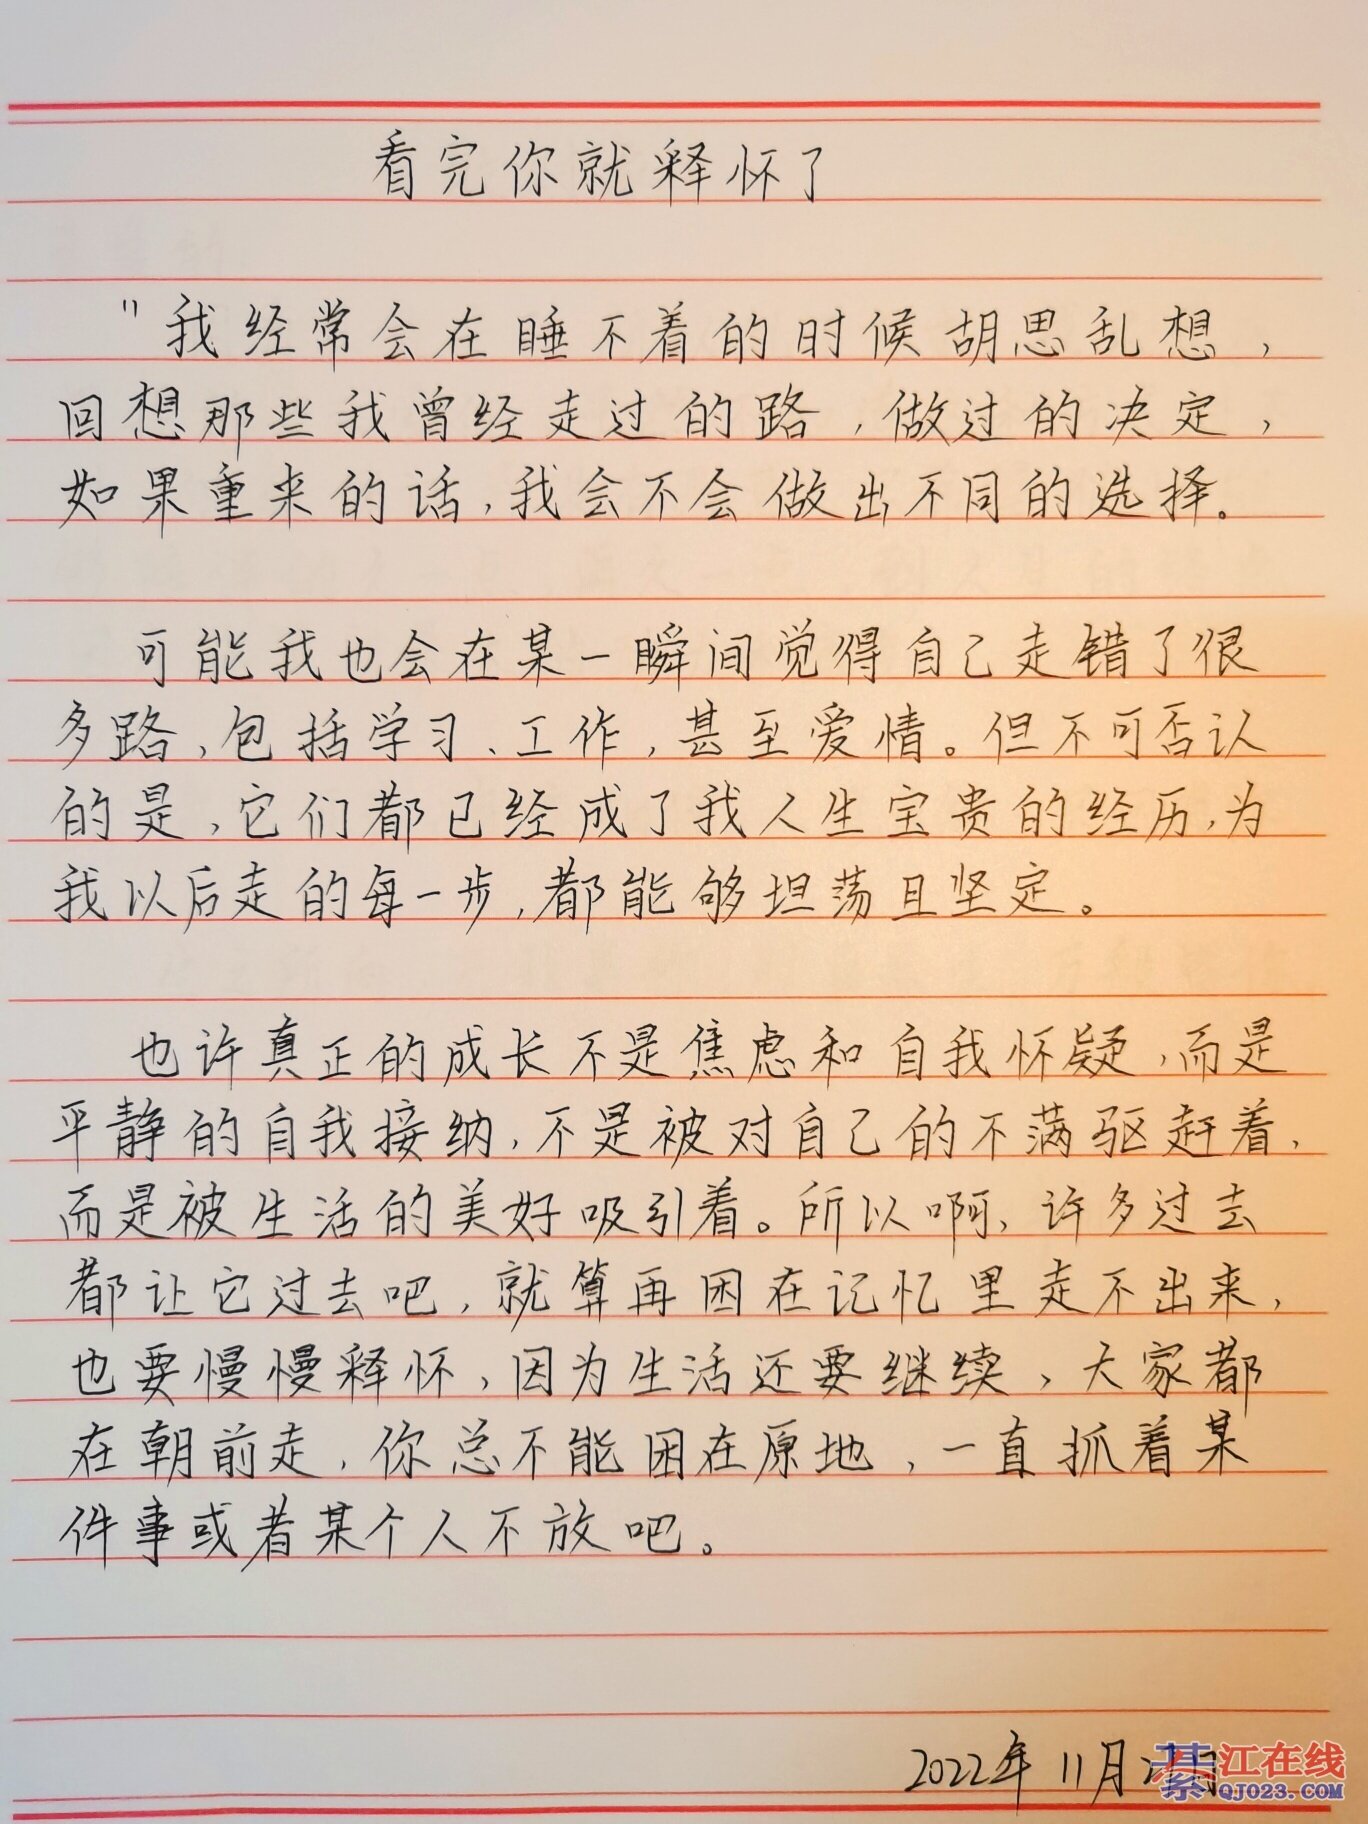 看完你就释怀了
"我经常会在睡不着的时候胡思乱想，
回想那些我曾经走过的路，做过的决定，
如果重来的话，我会不会做出不同的选择。
可能我也会在某一瞬间觉得自己走错了很
多路，包括学习、工作，甚至爱情。但不可否认
的是，它们都已经成了我人生宝贵的经历，为
我以后走的每一步，都能够坦荡且坚定。
也许真正的成长不是焦虑和自我怀疑，而是
平静的自我接纳，不是被对自己的不满驱赶着，
而是被生活的美好吸引着。所以啊，许多过去
都让它过去吧，就算再困在记忆里走不出来，
也要慢慢释怀，因为生活还要继续，大家都
在朝前走，你总不能困在原地，一直抓着某
件事或者某个人不放吧。
2022年11月
綦江在线
QJ023.COM